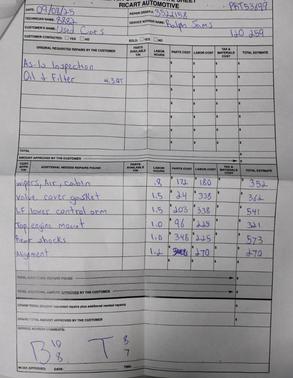 RICART AUTOMOTIVE
DATE: 09/08/25
REPAIR ORDER#: 3522158
PAT53699
TECHNICIAN NAME: 8882
SERVICE ADVISOR NAME: Ralph Sams
CUSTOMER'S NAME: Used Cars
120 259
CUSTOMER CONTACTED: YES NO
SOLD: YES NO
ORIGINAL REQUESTED REPAIRS BY THE CUSTOMER PARTS AVAILABLE Y/N LABOR HOURS PARTS COST LABOR COST TAX & MATERIALS COST TOTAL ESTIMATE
As-Is Inspection
Oil & Filter
TOTAL
AMOUNT APPROVED BY THE CUSTOMER
ADDITIONAL NEEDED REPAIRS FOUND PARTS AVAILABLE Y/N LABOR HOURS PARTS COST LABOR COST TAX & MATERIALS COST TOTAL ESTIMATE
wipers, Air, cabin .8 172 180 352
Valve cover gasket 1.5 24 338 362
LF lower control arm 1.5 203 338 541
Top engine mount 1.0 96 225 321
Rear shocks 1.0 348 225 573
Alignment 1.2 270 270
TOTAL ADDITIONAL REPAIRS FOUND
TOTAL ADDITIONAL AMOUNT APPROVED BY THE CUSTOMER
GRAND TOTAL
GRAND TOTAL AMOUNT APPROVED BY THE CUSTOMER
SERVICE ADVISOR COMMENTS:
B 10 8
T 8 7
DATE: TIME: